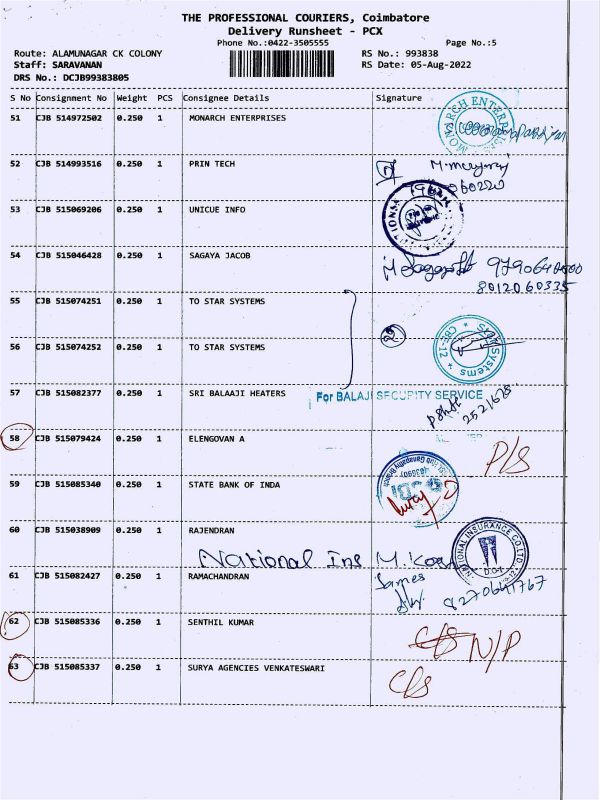 THE PROFESSIONAL COURIERS, Coimbatore
Delivery Runsheet - PCX
Phone No.:0422-3505555 Page No.:5
Route: ALAMUNAGAR CK COLONY RS No.: 993838
Staff: SARAVANAN RS Date: 05-Aug-2022
DRS No.: DCJB99383805
S No Consignment No Weight PCS Consignee Details Signature
51 CJB 514972502 0.250 1 MONARCH ENTERPRISES
MONARCH ENTERPRISES
52 CJB 514993516 0.250 1 PRIN TECH
53 CJB 515069206 0.250 1 UNICUE INFO
54 CJB 515046428 0.250 1 SAGAYA JACOB
8012060335
55 CJB 515074251 0.250 1 TO STAR SYSTEMS
56 CJB 515074252 0.250 1 TO STAR SYSTEMS
Systems * CBE-12 *
57 CJB 515082377 0.250 1 SRI BALAAJI HEATERS
For BALAJI SECURITY SERVICE
58 CJB 515079424 0.250 1 ELENGOVAN A
P/S
59 CJB 515085340 0.250 1 STATE BANK OF INDA
60 CJB 515038909 0.250 1 RAJENDRAN
National Ins
NATIONAL INSURANCE CO. LTD.
61 CJB 515082427 0.250 1 RAMACHANDRAN
62 CJB 515085336 0.250 1 SENTHIL KUMAR
N/P
63 CJB 515085337 0.250 1 SURYA AGENCIES VENKATESWARI
C/S